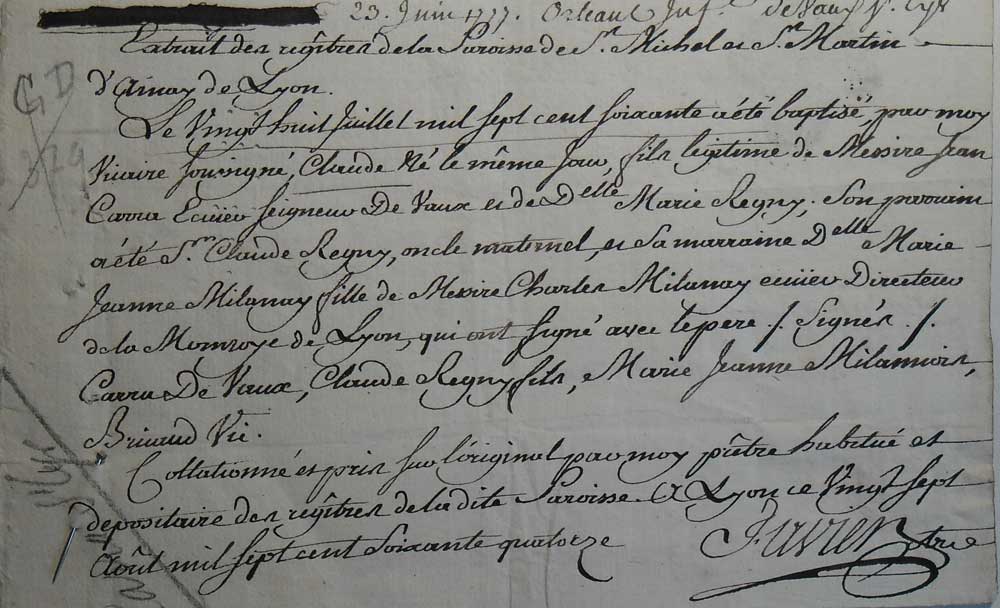 23. Juin 1777. Orleans Inf.ie de Vaux St. Cyr
Extrait des regîtres de la Paroisse de St. Michel et St. Martin
d'Ainay de Lyon.
Le Vingt huit Juillet mil sept cent soixante a été baptisé, par moy
Vicaire soussigné, Claude Né le même jour, fils légitime de Messire Jean
Carra Ecuier Seigneur De Vaux et de Delle Marie Regny; Son parrain
a été Sr. Claude Regny, oncle maternel, et Sa marraine Delle Marie
Jeanne Milanay fille de Messire Charles Milanay ecuier Directeur
de la Monnoye de Lyon, qui ont signé avec le pere / Signés /.
Carra De Vaux, Claude Regny fils, Marie Jeanne Milannois,
Briaud Vic.
Collationné et pris sur l'original par moy prêtre habitué et
depositaire des regîtres de la dite Paroisse. A Lyon ce Vingt sept
Août mil sept cent Soixante quatorze
GD